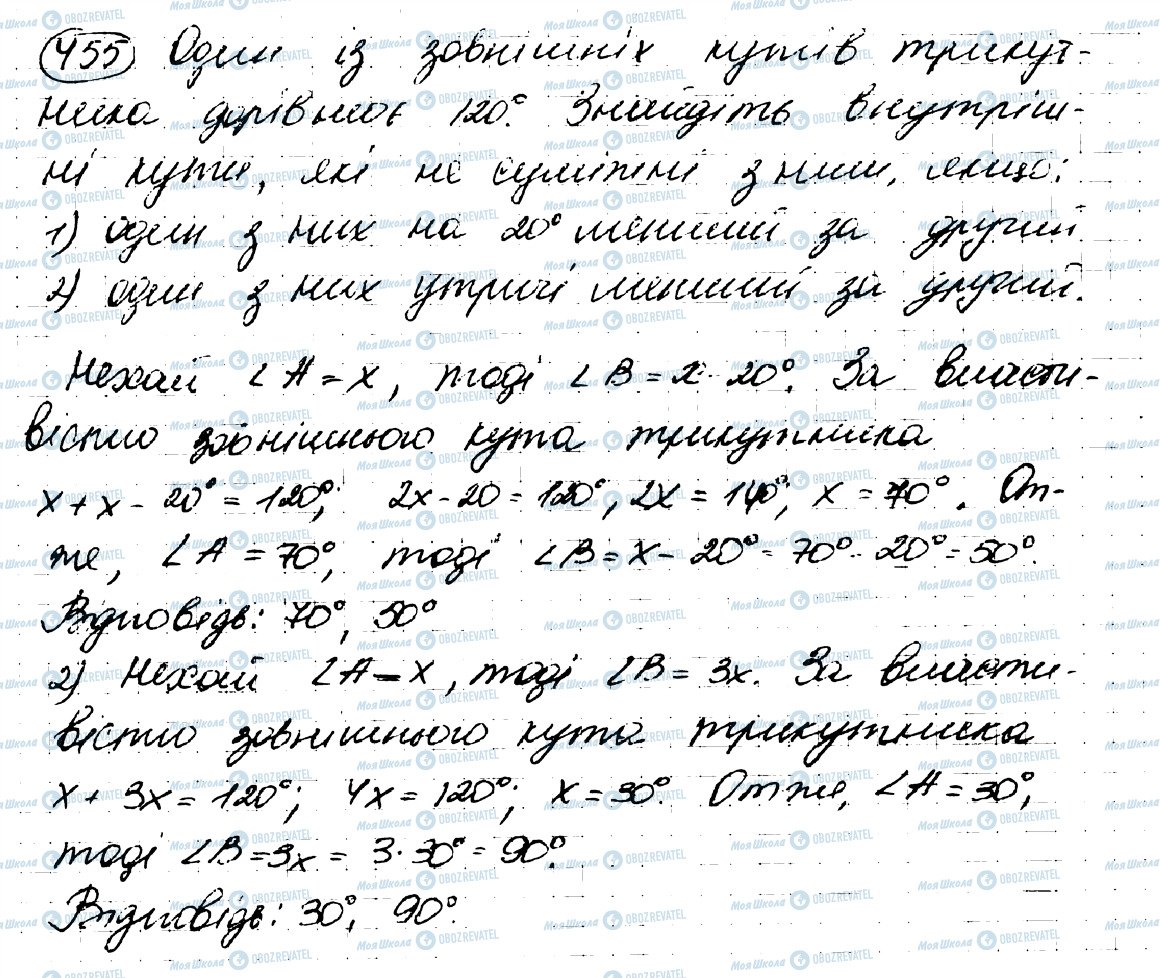 455 Один із зовнішніх кутів трикут-
ника дорівнює 120°. Знайдіть внутріш-
ні кути, які не суміжні з ним, якщо:
1) один з них на 20° менший за другий
2) один з них утричі менший за другий.
Нехай ∠A = x, тоді ∠B = x - 20°. За власти-
вістю зовнішнього кута трикутника
x + x - 20° = 120°; 2x - 20 = 120°, 2x = 140°; x = 70°. От-
же, ∠A = 70°, тоді ∠B = x - 20° = 70° - 20° = 50°.
Відповідь: 70°, 50°
2) Нехай ∠A = x, тоді ∠B = 3x. За власти-
вістю зовнішнього кута трикутника
x + 3x = 120°; 4x = 120°; x = 30°. Отже, ∠A = 30°,
тоді ∠B = 3x = 3 · 30° = 90°.
Відповідь: 30°, 90°.